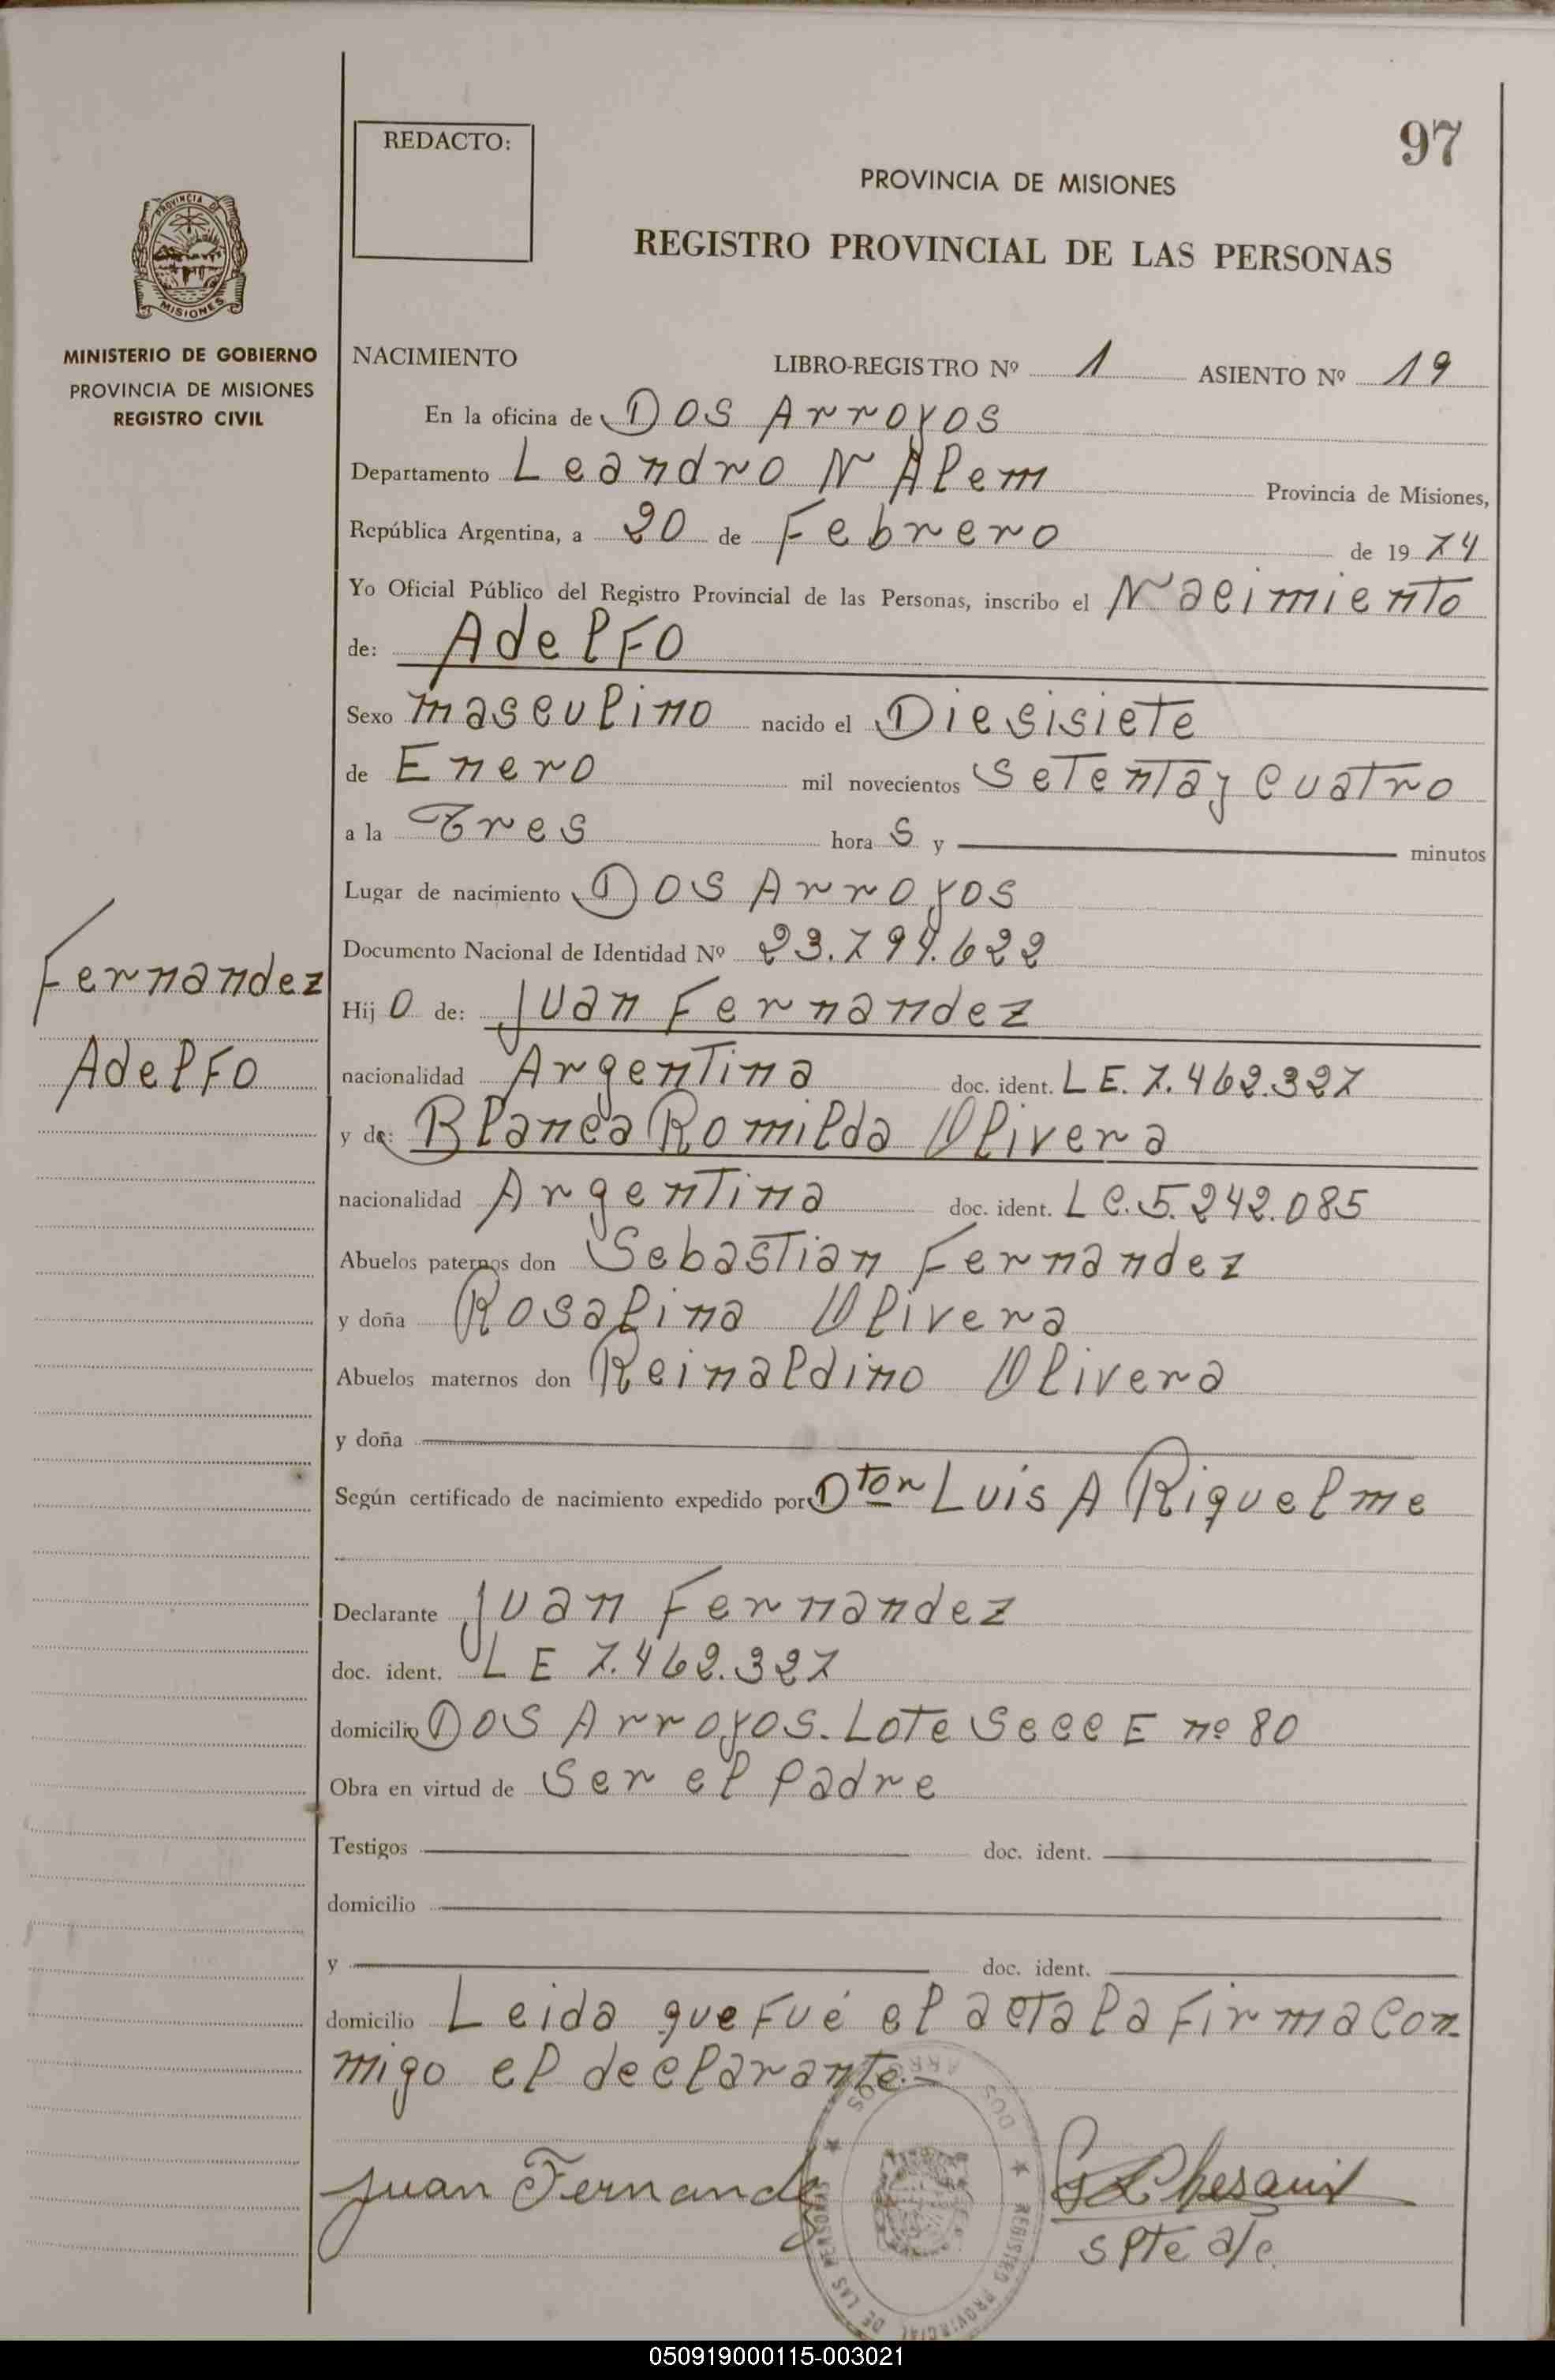 97
REDACTO:
PROVINCIA DE MISIONES
REGISTRO PROVINCIAL DE LAS PERSONAS
PROVINCIA DE
MISIONES
MINISTERIO DE GOBIERNO
PROVINCIA DE MISIONES
REGISTRO CIVIL
NACIMIENTO LIBRO-REGISTRO Nº 1 ASIENTO Nº 19
En la oficina de Dos Arroyos
Departamento Leandro N Alem Provincia de Misiones,
República Argentina, a 20 de Febrero de 19 74
Yo Oficial Público del Registro Provincial de las Personas, inscribo el Nacimiento
de: Adelfo
Sexo masculino nacido el Diesisiete
de Enero mil novecientos setenta y cuatro
a la Tres hora s y minutos
Lugar de nacimiento Dos Arroyos
Documento Nacional de Identidad Nº 23.794.622
Fernandez
Adelfo
Hij o de: Juan Fernandez
nacionalidad Argentina doc. ident. L E. 7.462.327
y de: Blanca Romilda Olivera
nacionalidad Argentina doc. ident. L C. 5.242.085
Abuelos paternos don Sebastian Fernandez
y doña Rosalina Olivera
Abuelos maternos don Reinaldino Olivera
y doña
Según certificado de nacimiento expedido por Dtor Luis A Riquelme
Declarante Juan Fernandez
doc. ident. L E 7.462.327
domicilio Dos Arroyos. Lote Secc E nº 80
Obra en virtud de Ser el Padre
Testigos doc. ident.
domicilio
y doc. ident.
domicilio Leida que fué el acta la firma con
migo el declarante.-
DOS ARROYOS
REGISTRO PROVINCIAL DE LAS PERSONAS
Juan Fernandez
S Pte a/c.
050919000115-003021